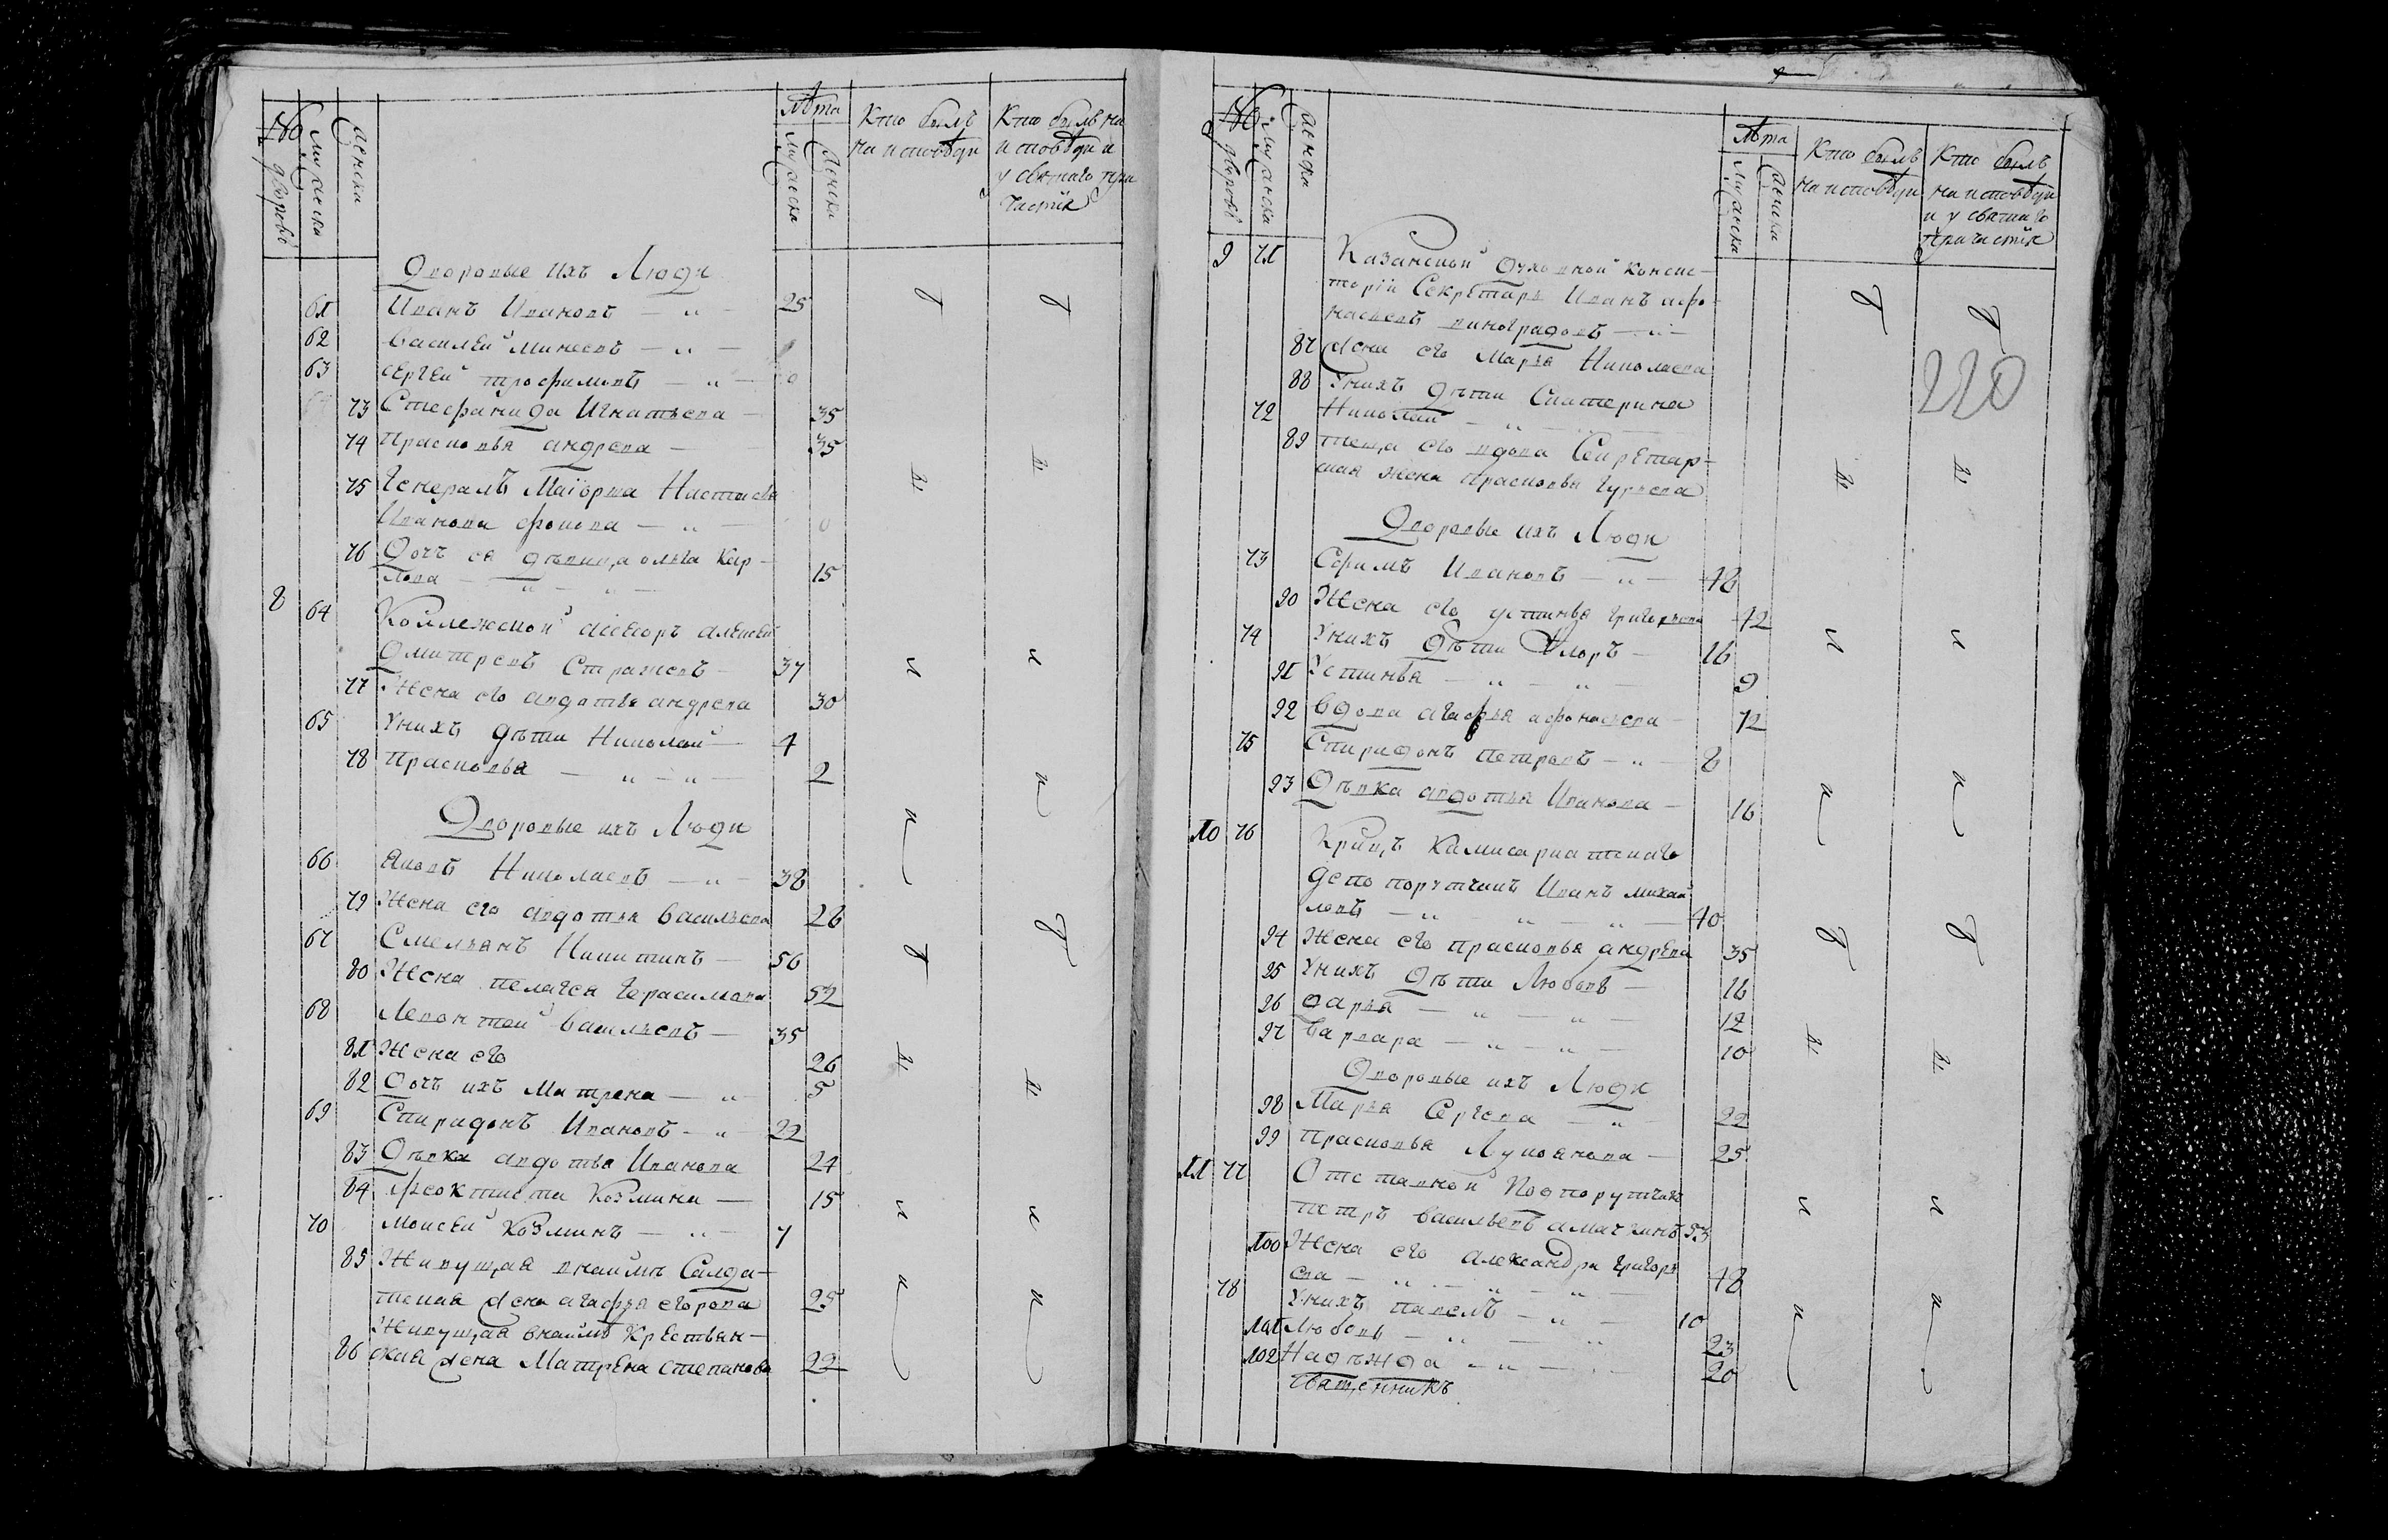 № дворовъ
Мужеска
Женска
Лѣта
Мужеска
Женска
Кто былъ
на исповѣди
Кто былъ на
исповѣди и
у святаго при
частія
Дворовые ихъ Люди
61 Иванъ Ивановъ — „ — 25
62 Василей Минеевъ — „ —
63 Сергей трофимовъ — „ —
73 Стефанида Игнатьева — 35
74 Прасковья андреева — 35
75 Генералъ Маіорша Настасья
Иванова фокова — „ —
76 Дочь ея дѣвица ольга Кар-
лова — „ — „ — 15
8 64 Коллежской асесоръ алексей
Дмитревъ Стражевъ — 37
77 Жена его авдотья андреева 30
65 У нихъ дѣти Николай — 4
78 Прасковья — „ — „ — 2
Дворовые ихъ Люди
66 Яковъ Николаевъ — „ — 38
79 Жена его авдотья васильева 26
67 Емельянъ Никитинъ — 56
80 Жена пелагея Герасимова 52
68 Леонтей васильевъ — 35
81 Жена его 26
82 Дочь ихъ Матрена — „ 5
69 Спиридонъ Ивановъ — „ — 22
83 Дѣвка авдотья Иванова 24
84 феоктиста Козмина — 15
70 Моисей Козминъ — „ — 7
85 Живущая внаймѣ Салда-
тская жена агафья егорова 25
Живущая внаймѣ Крестьян-
86 ская жена Матрена степанова 22
№ дворовъ
Мужеска
Женска
Лѣта
Мужеска
Женска
Кто былъ
на исповѣди
Кто былъ
на исповѣди
и у святаго
причастія
220
9 71 Казанской Духовной консис-
торіи Секретарь Иванъ афо-
насьевъ виноградовъ — „ —
87 Жена его Марья Николаева
88 У нихъ дѣти Екатерина
72 Николай — „ —
89 теща его вдова Секретар-
ская жена Прасковья Гурьева
Дворовые ихъ Люди
73 Ефимъ Ивановъ — „ — 48
90 Жена его устинья григорьева 42
74 У нихъ дѣти Флоръ — 16
91 Устинья — „ — „ — 9
92 Вдова агафья афонасьева — 72
75 Спиридонъ петровъ — „ — 8
93 Дѣвка авдотья Иванова — 16
10 76 Кригсъ Камисариатскаго
депо порутчикъ Иванъ михай
ловъ — „ — „ — „ — 40
94 Жена его прасковья андреева 35
95 У нихъ Дѣти Любовь — 16
96 дарья — „ — „ — 12
97 Варвара — „ — „ — 10
Дворовые ихъ Люди
98 Марья Сергеева — „ 22
99 Прасковья Лукоянова — 25
11 77 Отставной Подпорутчикъ
петръ васильевъ 53
100 Жена его александра григорь
ева — „ — „ — „ — 48
78 У нихъ павелъ — „ — 10
101 Любовь — „ — „ 23
102 Надѣжда — „ — 20
Священникъ